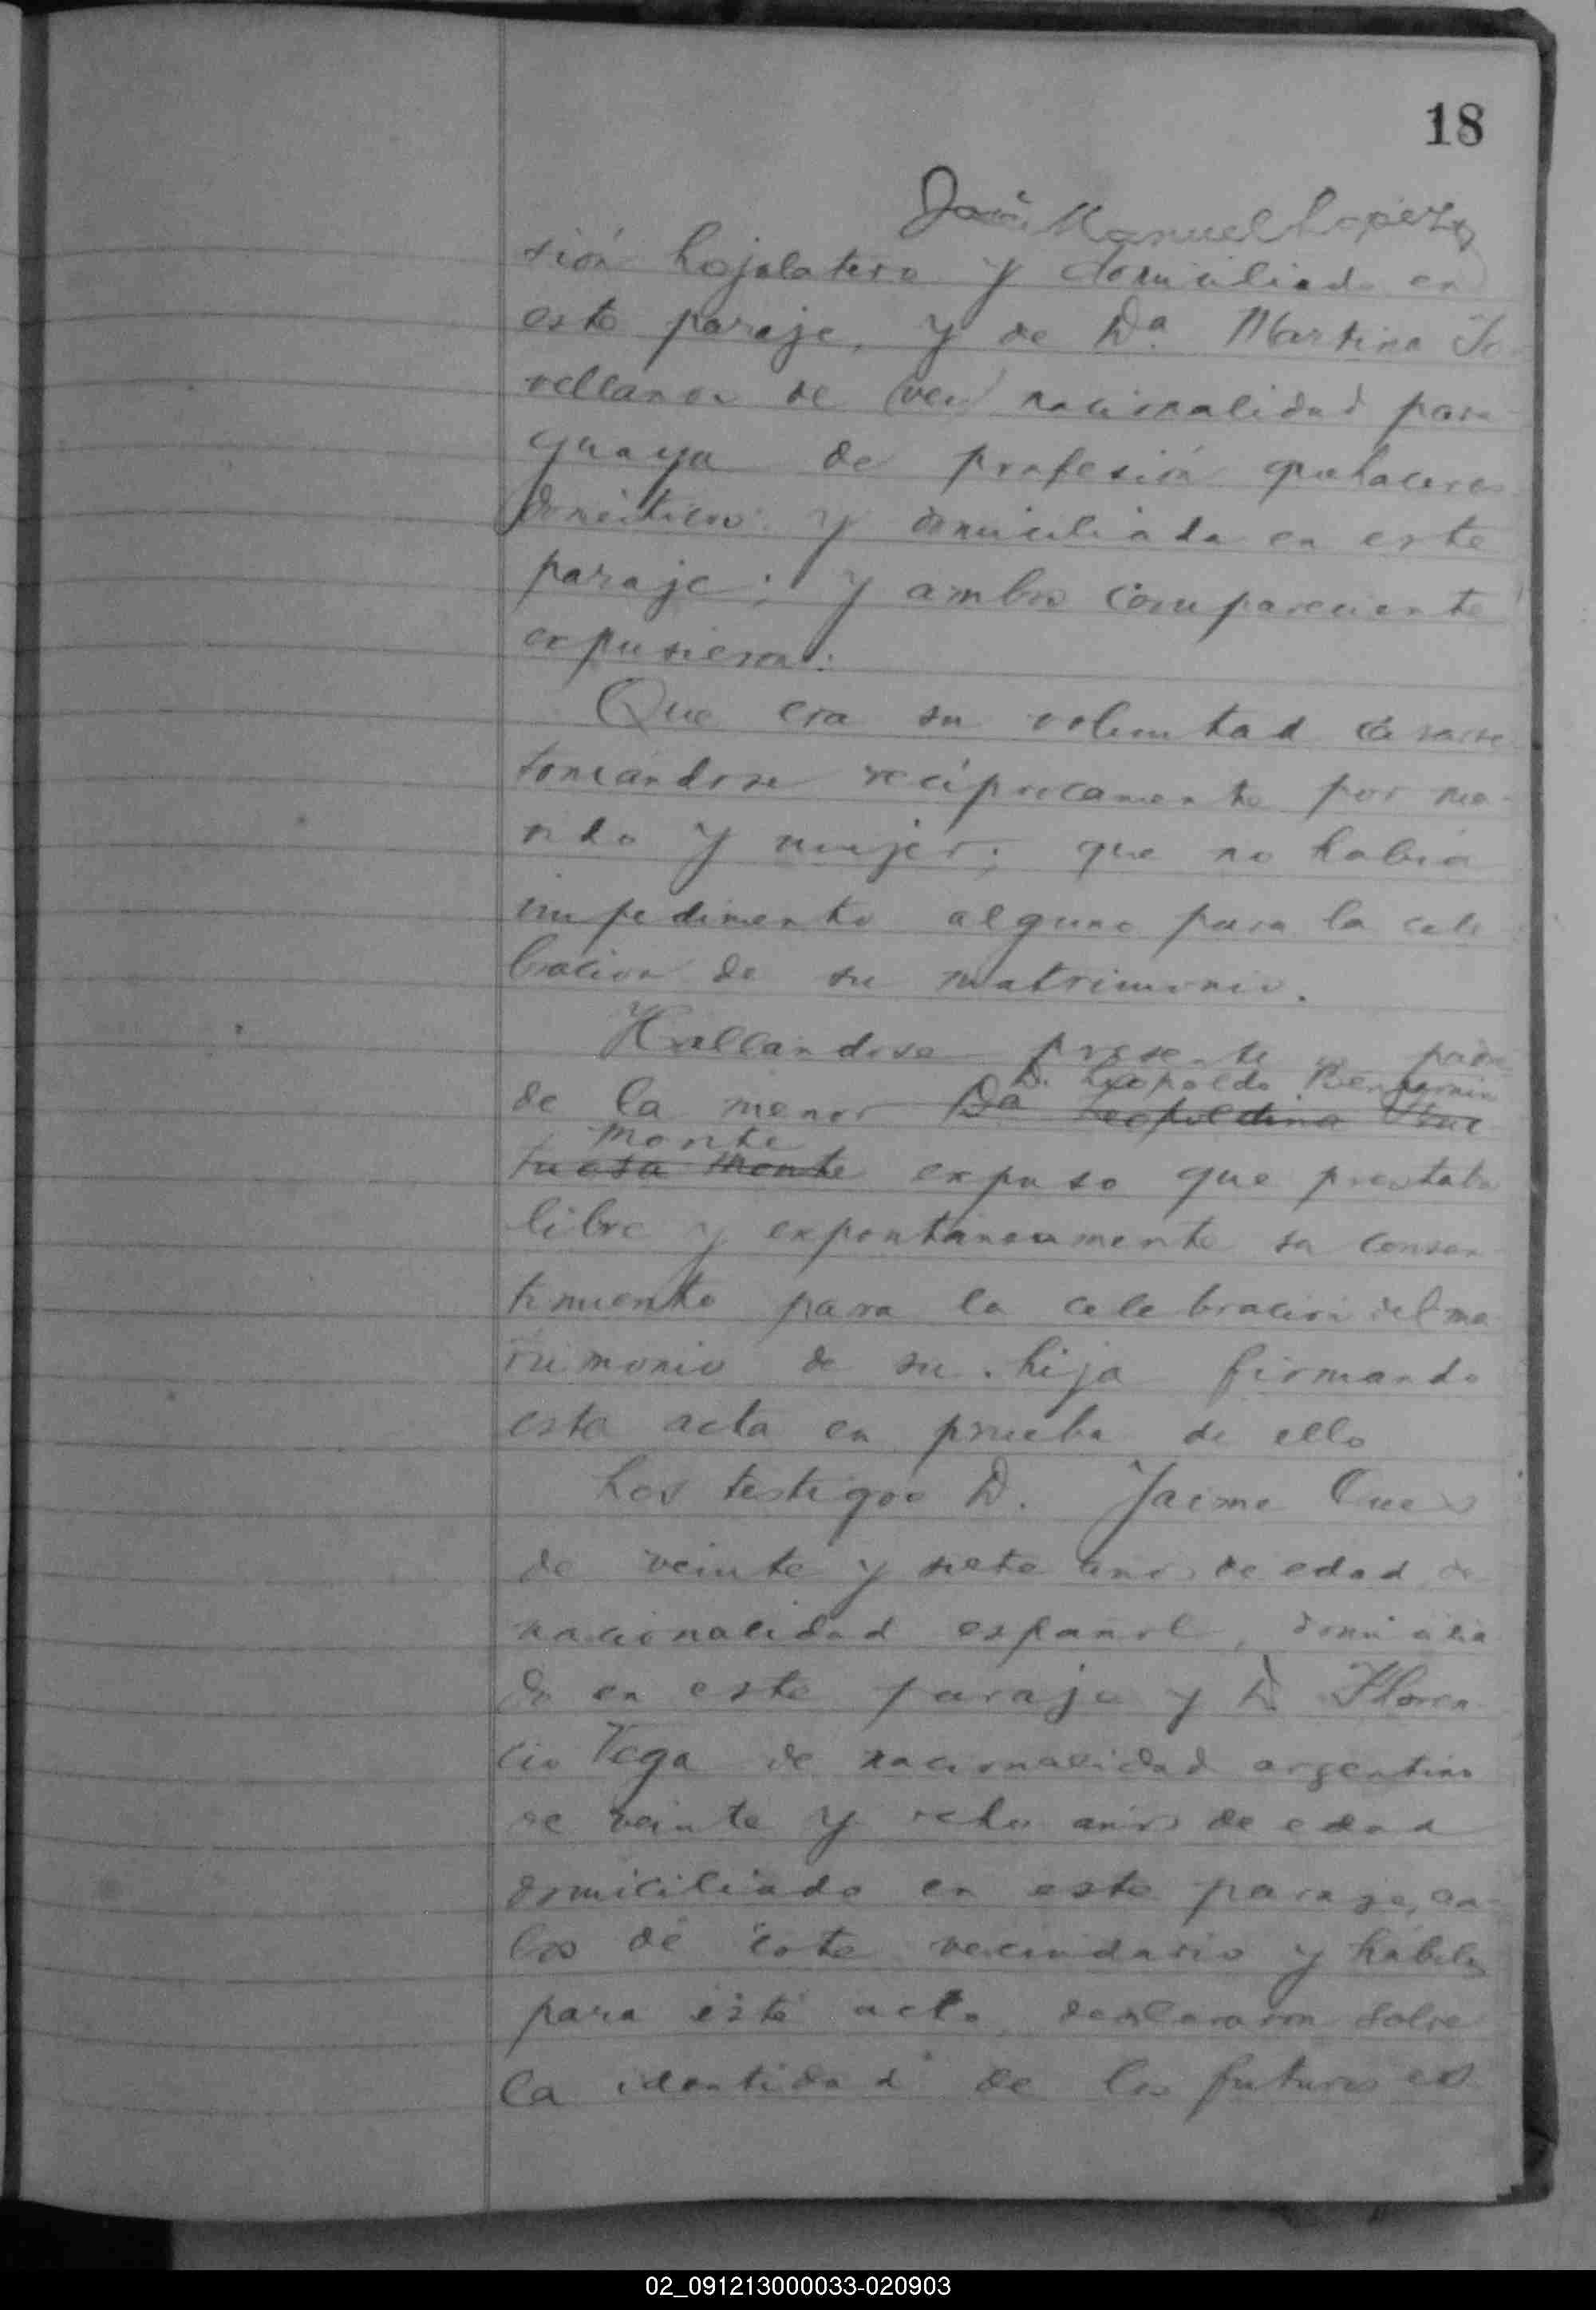 18
José Manuel Lopez
sión hojalatero y domiciliado en
este paraje, y de Da. Martina Jo
vellanos de nacionalidad para
guaya de profesión quehaceres
domésticos y domiciliada en este
paraje; y ambos compareciente
expusieron:
Que era su voluntad casarse
tomándose recíprocamente por ma-
rido y mujer; que no había
impedimento alguno para la cele
bracion de su matrimonio.
Hallandose presente padre
D. Leopoldo Benjamin
de la menor Da Leopoldina
Monte
tuosa Monte expuso que prestaba
libre y expontaneamente su consen
timiento para la celebración del ma
trimonio de su hija firmando
esta acta en prueba de ello
Los testigos D. Jaime
de veinte y siete años de edad de
nacionalidad español, domicilia
do en este paraje y D Floren
cio Vega de nacionalidad argentino
de veinte y ocho años de edad
domiciliado en este paraje, am-
bos de este vecindario y hábiles
para este acto, declararon sobre
la identidad de los futuros es
02_091213000033-020903